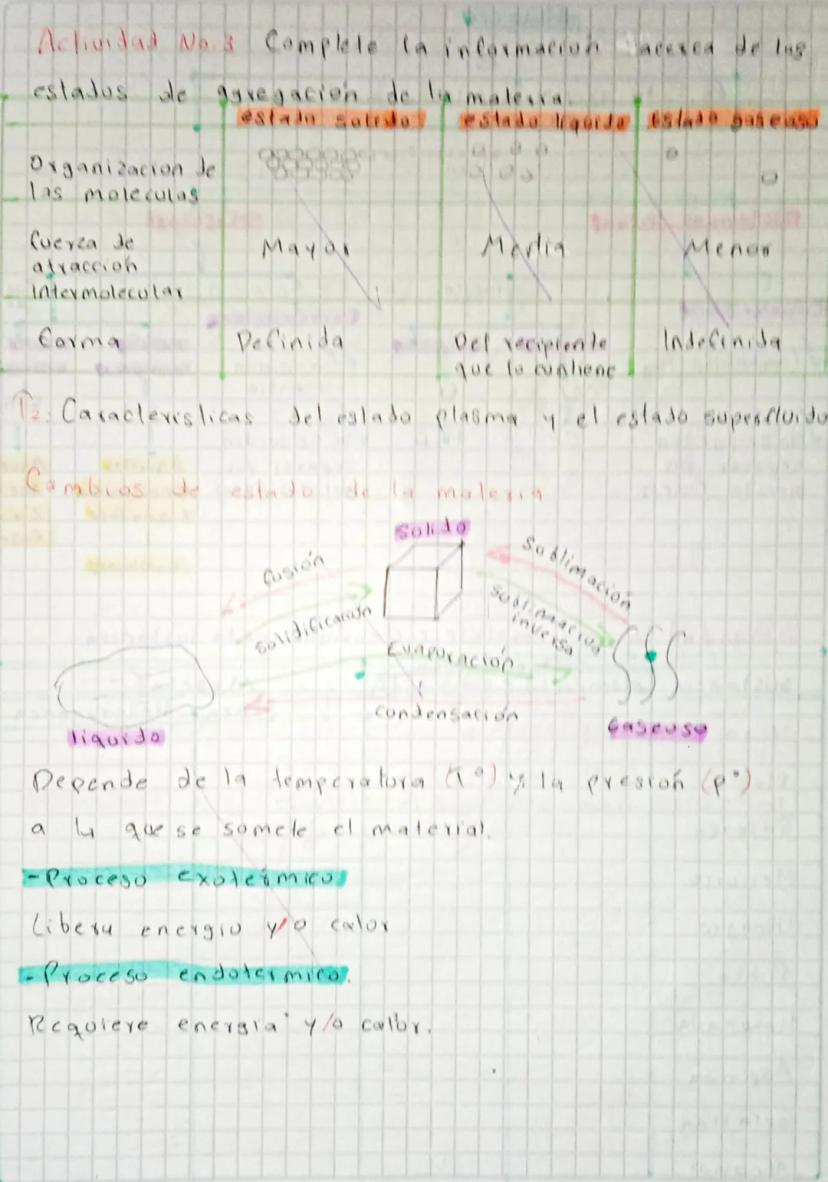 Actividad No. 3 Complete la informacion acerca de los
estados de agregación de la materia.
estado solido estado liquido Estado gaseoso
Organizacion de
las moleculas
fuerza de Mayor Media Menor
atracción
intermolecular
forma Definida Del recipiente Indefinida
que lo contiene
T2: Caracteristicas del estado plasma y el estado superfluido
Cambios de estado de la materia
Solido
fusión
Sublimación
Solidificación
Sublimación
inversa
Evaporación
condensación
liquido
Gaseoso
Depende de la temperatura (T°) y la presión (p°)
a la que se somete el material.
-Proceso exotérmico
Libera energia y/o calor
-Proceso endotermico.
Requiere energia y/o calor.